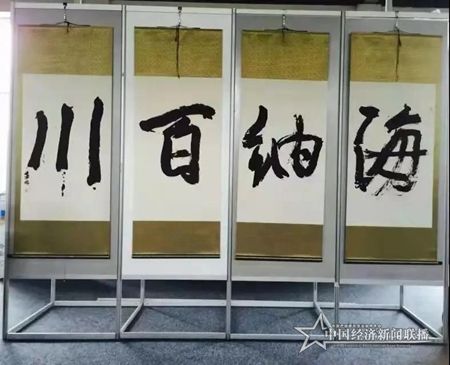 海纳百川
中国经济新闻联播